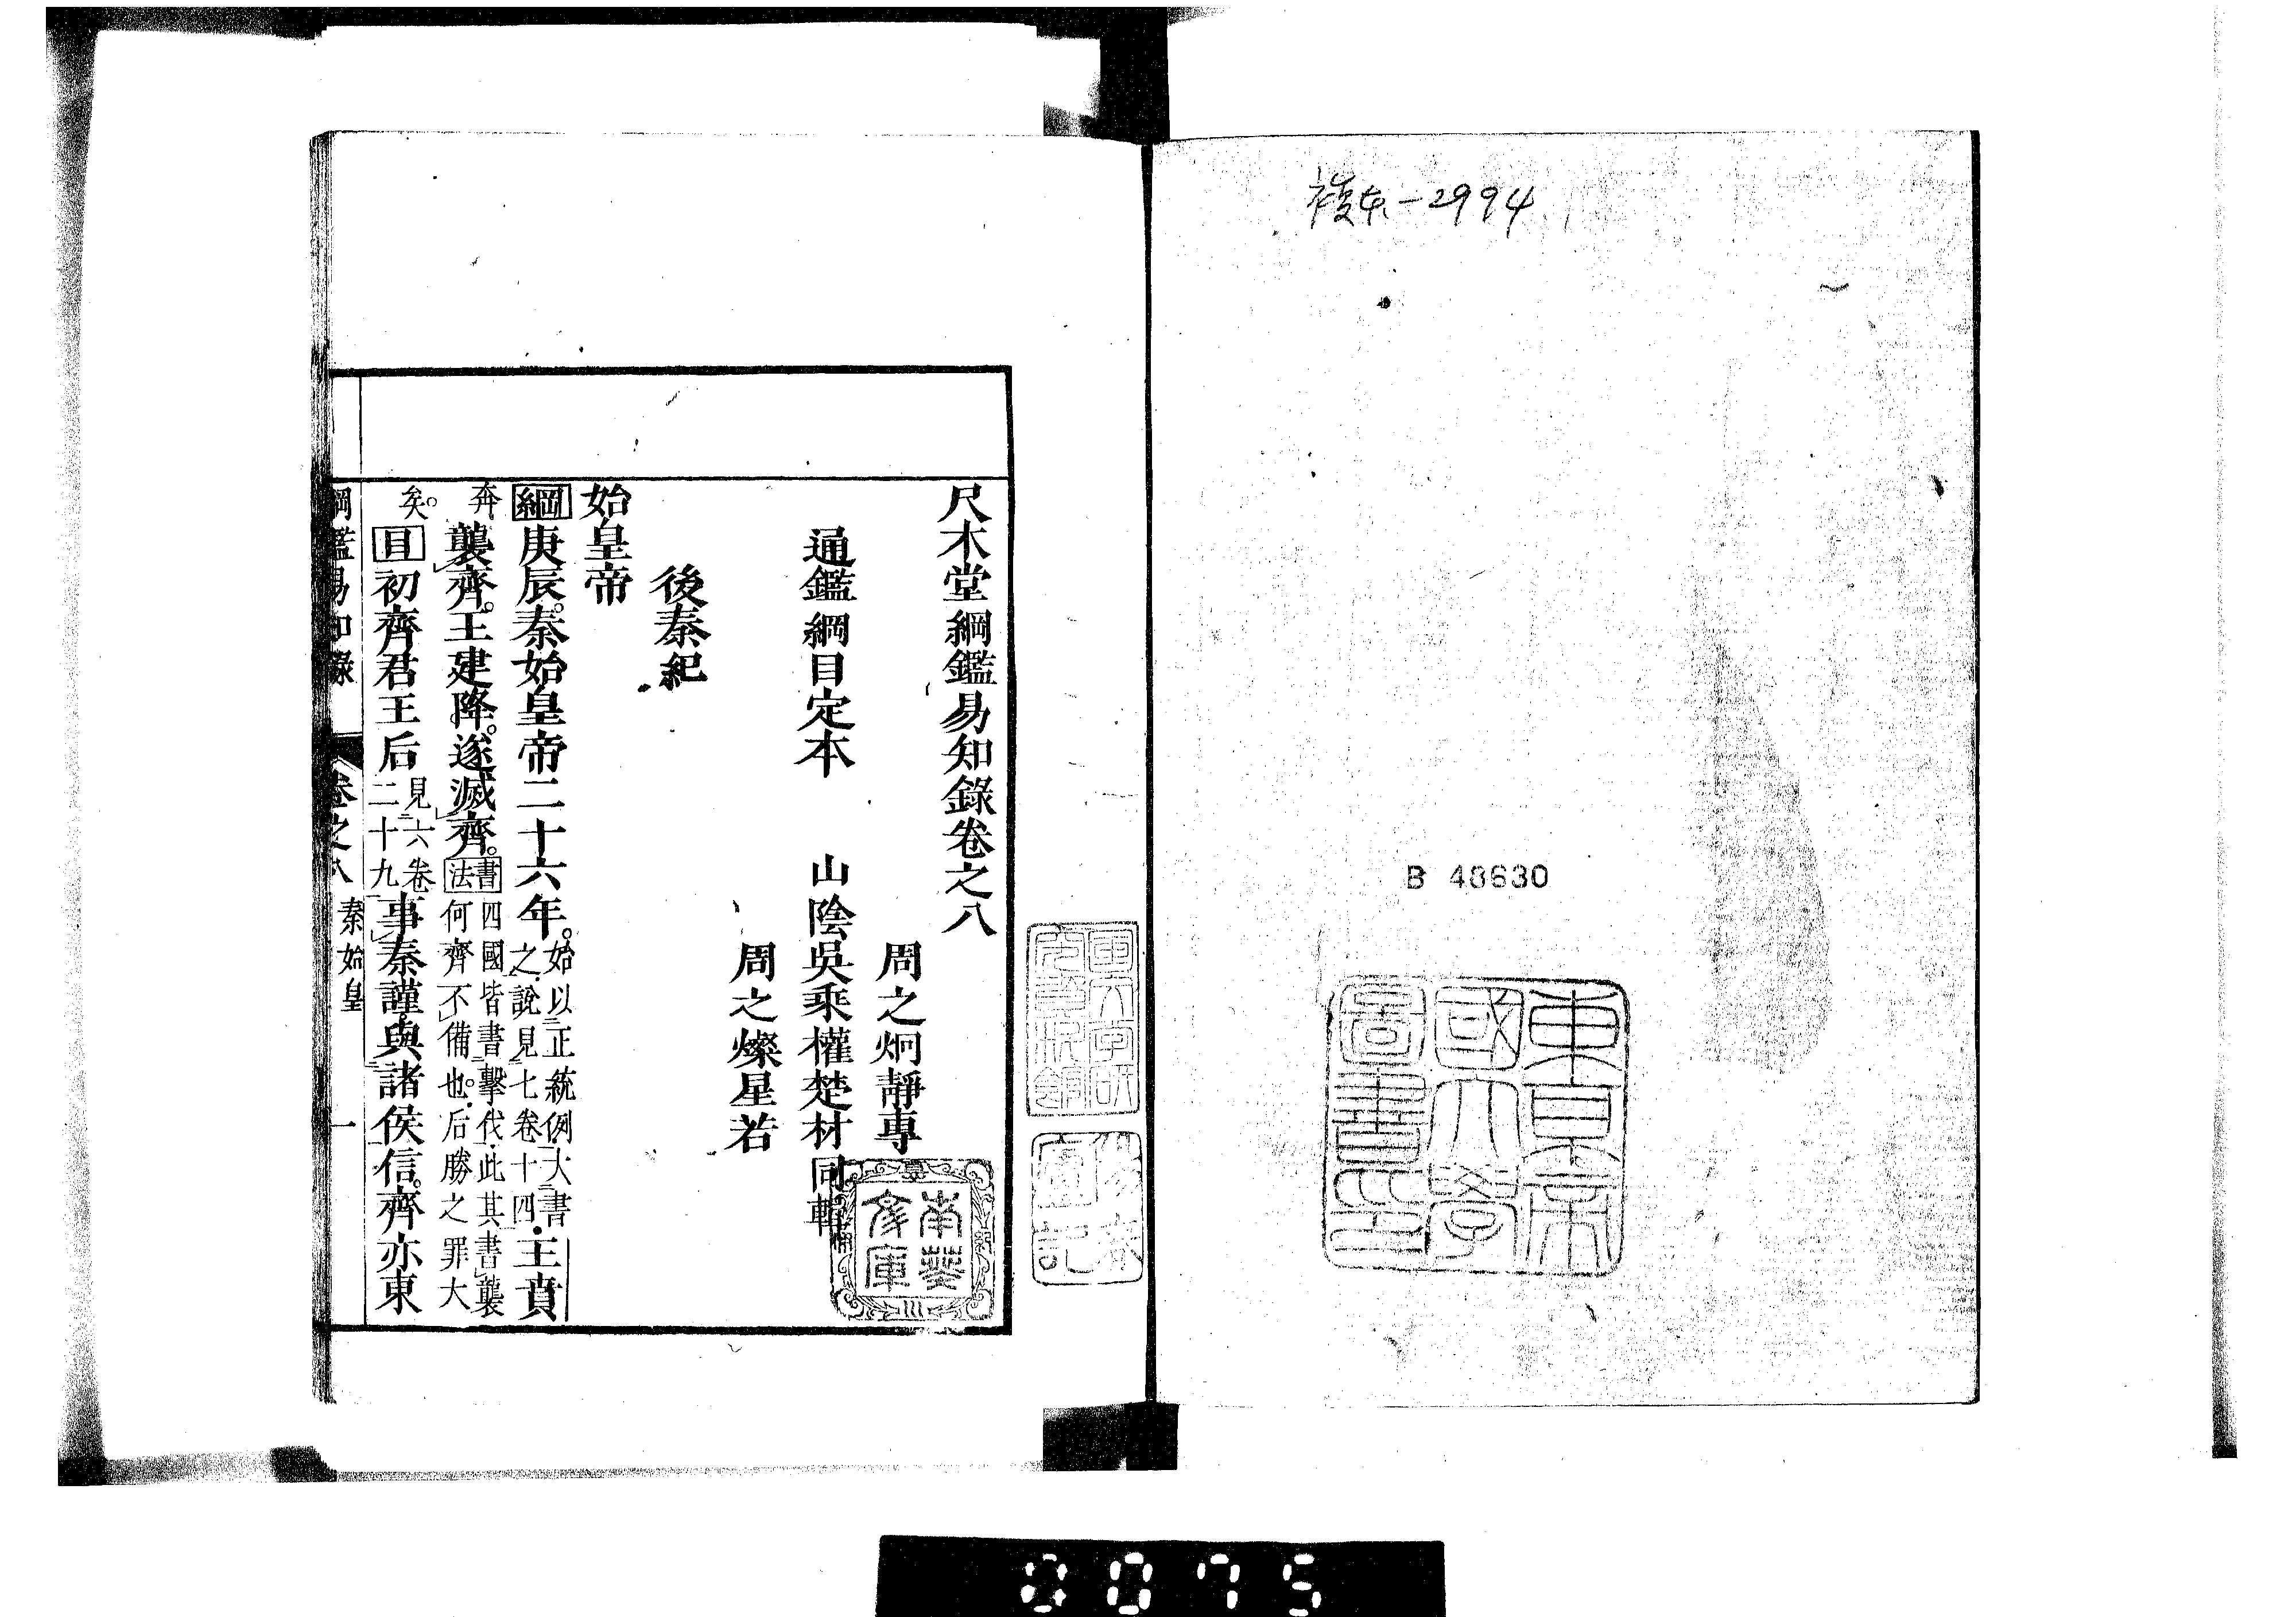 複本-2994
B 48630
東京帝國大學圖書之印
尺木堂綱鑑易知錄卷之八
周之炯靜專
通鑑綱目定本　山陰吳乘權楚材同輯
周之燦星若
後秦紀
始皇帝
綱庚辰。秦始皇帝二十六年。始以正統例大書之說見七卷十四王賁
奔襲齊。王建降。遂滅齊。書法四國皆書擊伐此其書襲何齊不備也。后勝之罪大
矣。目初齊君王后見六卷二十九事秦謹與諸侯信。齊亦東
綱鑑易知錄　卷之八　秦始皇　一
0075